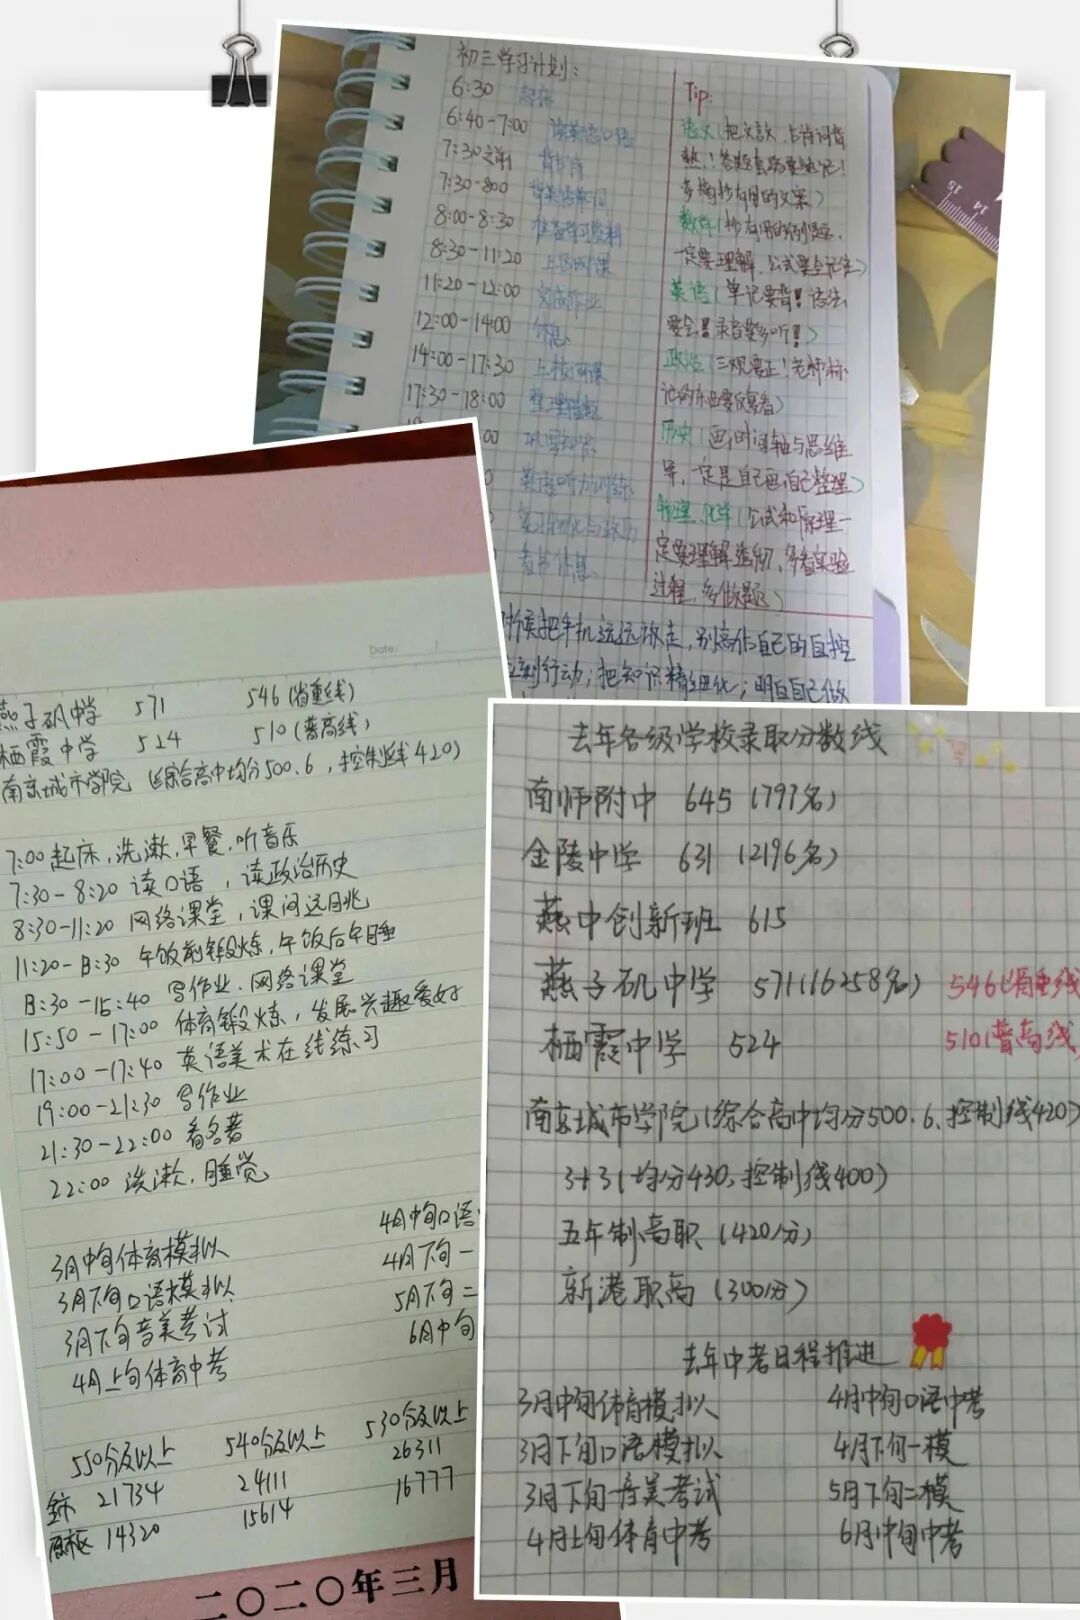 初三学习计划：
6:30 起床
6:40-7:00 读英语口语
7:30之前
7:30-800 背英语单词
8:00-8:30 准备学习资料
8:30-11:20 上网课
11:20-12:00 完成作业
12:00-14:00 休息
14:00-17:30 上校网课
17:30-18:00 整理错题
:00 巩固知识
0 英语听力训练
复习物化与政历
看书休息
Tip:
语文（把文言文、古诗词背
熟！答题套路要速记！
多摘抄有用的文案）
数学（抄有用的例题，
一定要理解、公式要全记住）
英语（单记要背！语法
要会！录音要多听！）
政治（三观要正！老师标
记的东西要反复看）
历史（画时间轴与思维
导，一定是自己画自己整理）
物理、化学（公式和原理一
定要理解透彻，多看实验
过程，多做题）
时候把手机远远放走，别高估自己的自控
立刻行动；把知识精细化；明白自己做
Date: /
燕子矶中学 571 546（省重线）
栖霞中学 524 510（普高线）
南京城市学院（综合高中均分500.6，控制线420）
7:00 起床，洗漱，早餐，听音乐
7:30-8:20 读口语，读政治历史
8:30-11:20 网络课堂，课间远眺
11:20-13:30 午饭前锻炼，午饭后午睡
13:30-15:40 写作业、网络课堂
15:50-17:00 体育锻炼，发展兴趣爱好
17:00-17:40 英语美术在线练习
19:00-21:30 写作业
21:30-22:00 看名著
22:00 洗漱，睡觉
3月中旬体育模拟 4月中旬口语
3月下旬口语模拟 4月下旬一
3月下旬音美考试 5月下旬二
4月上旬体育中考 6月中旬
550分及以上 540分及以上 530分及以上
全市 21734 24111 26311
14320 15614 16777
二〇二〇年三月
去年各级学校录取分数线
南师附中 645（797名）
金陵中学 631（2196名）
燕中创新班 615
燕子矶中学 571（16258名） 546（省重线
栖霞中学 524 510（普高线
南京城市学院（综合高中均分500.6、控制线420）
3+3（均分430，控制线400）
五年制高职（420分）
新港职高（300分）
去年中考日程推进
3月中旬体育模拟 4月中旬口语中考
3月下旬口语模拟 4月下旬一模
3月下旬音美考试 5月下旬二模
4月上旬体育中考 6月中旬中考
15 14